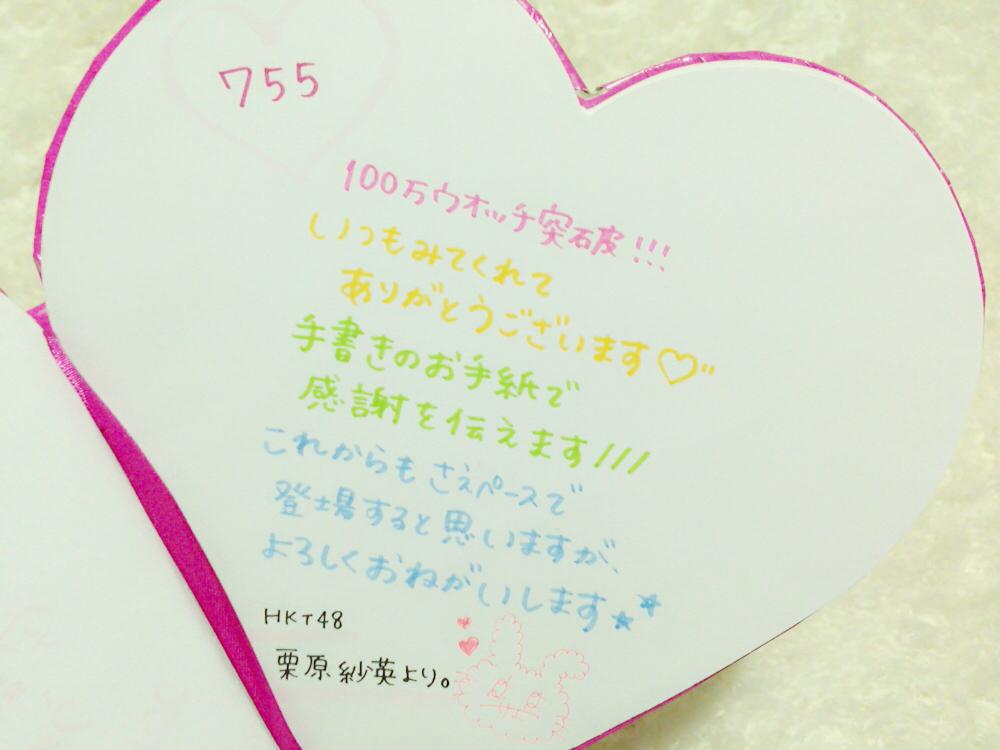 755
100万ウオッチ突破!!!
いつもみてくれて
ありがとうございます♡"
手書きのお手紙で
感謝を伝えます///
これからもさえペースで
登場すると思いますが、
よろしくおねがいします★★
HKT48
栗原紗英より。